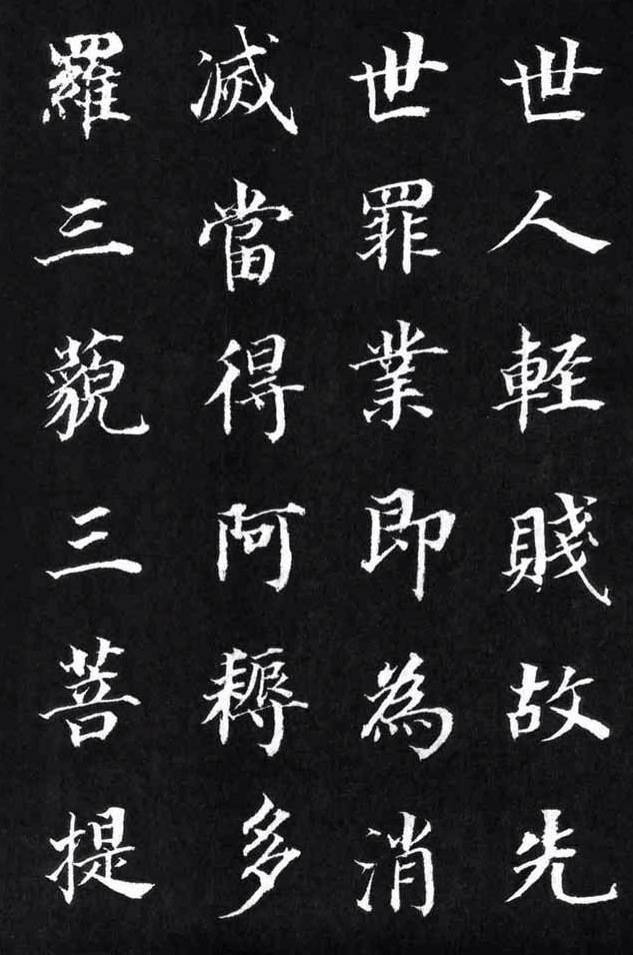 世人輕賤故先
世罪業即為消
滅當得阿耨多
羅三藐三菩提